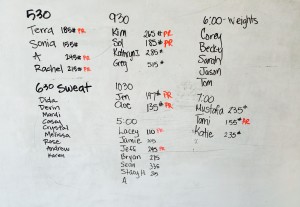 530
Terra 185# PR
Sonia 155#
A 245# PR
Rachel 215# PR
630 Sweat
Dida
Devin
Mardi
Casey
Crystal
Melissa
Rose
Andrew
Karen
930
Kim 265# PR
Sol 185# PR
Kathryn 285#
Greg 315#
1030
Jen 147# PR
Cloe 135# PR
5:00
Lacey 110 PR
Jamie 245
Jeff 245 PR
Bryan 275
Sean 335
Stacy H 215
A
6:00 - Weights
Corey
Becky
Sarah
Jason
Tom
7:00
Mustafa 235#
Tami 155# PR
Katie 235#